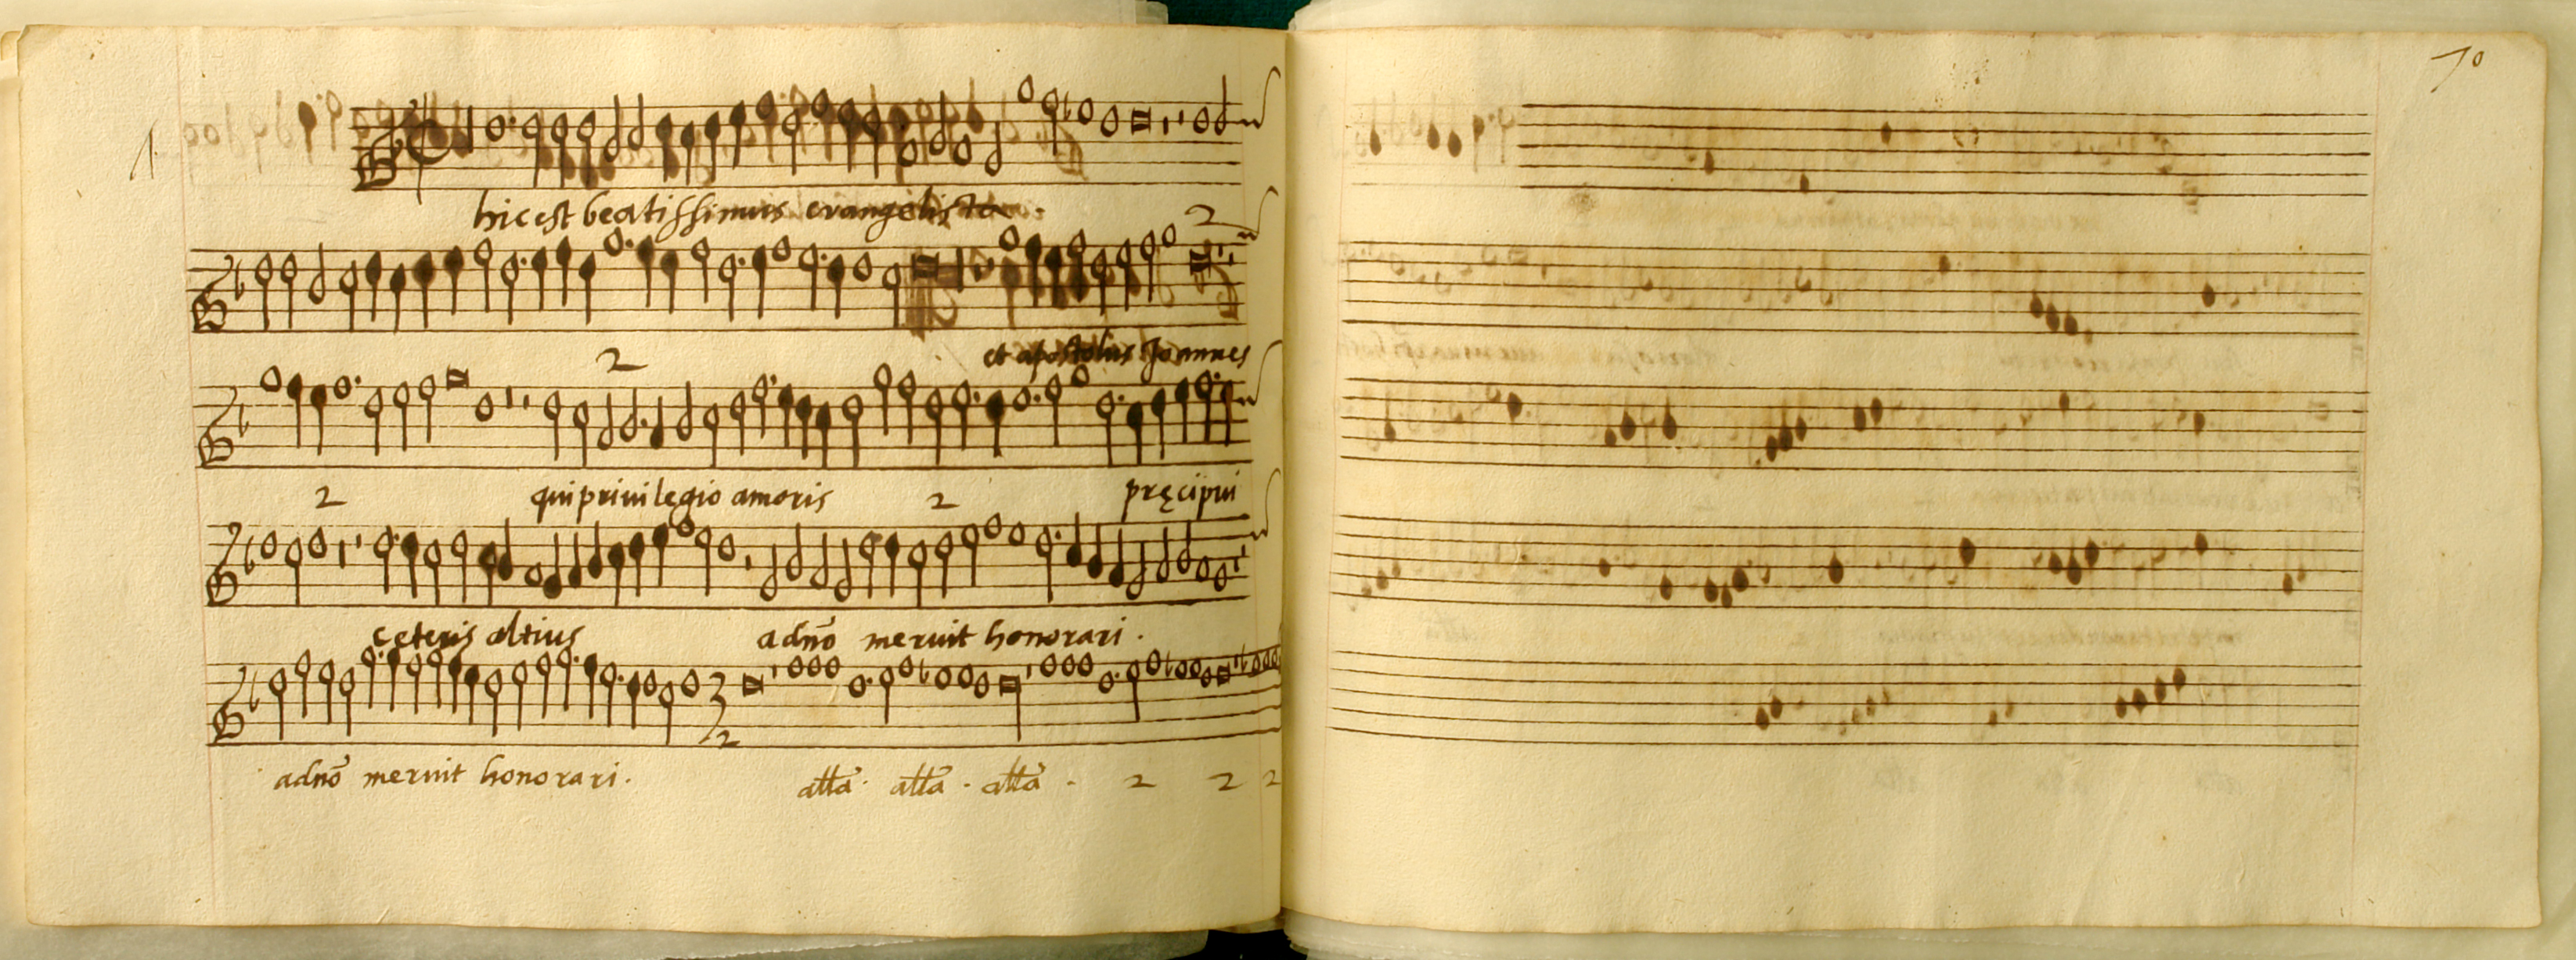 70
hic est beatissimus evangelista .
2
et apostolus Joannes
2
2 qui privilegio amoris 2 pręcipui
cęteris altius adnō meruit honorari .
3
2
adnō meruit honorari . alła . alła . alła . 2 2 2